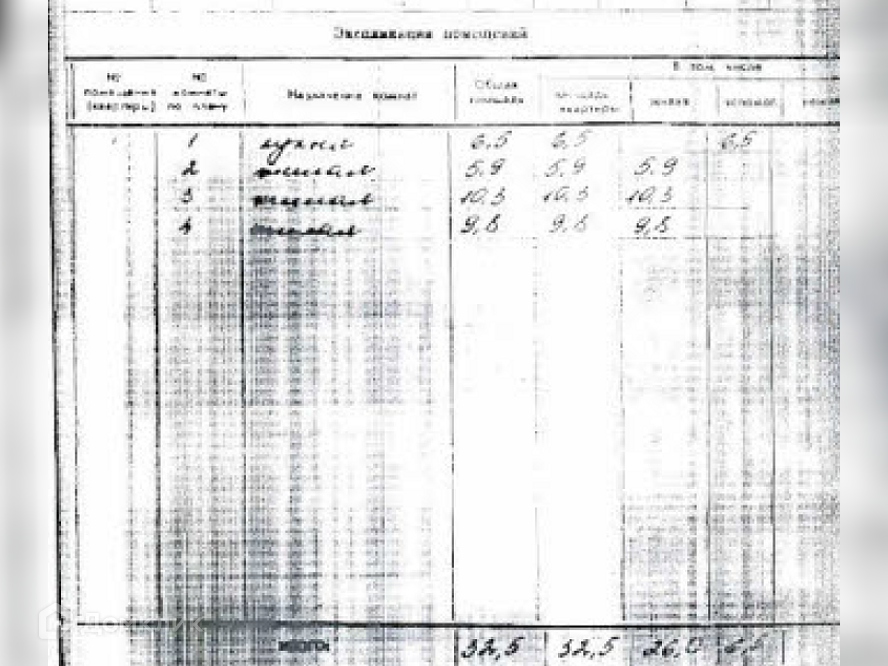 Экспликация помещений
В том числе
№ помещения (квартиры)
№ комнаты по плану
Назначение комнат
Общая площадь
площадь квартиры
жилая
1 кухня 6,5 6,5 6,5
2 жилая 5,9 5,9 5,9
3 жилая 10,3 10,3 10,3
4 жилая
ИТОГО: 32,5 32,5 26,0